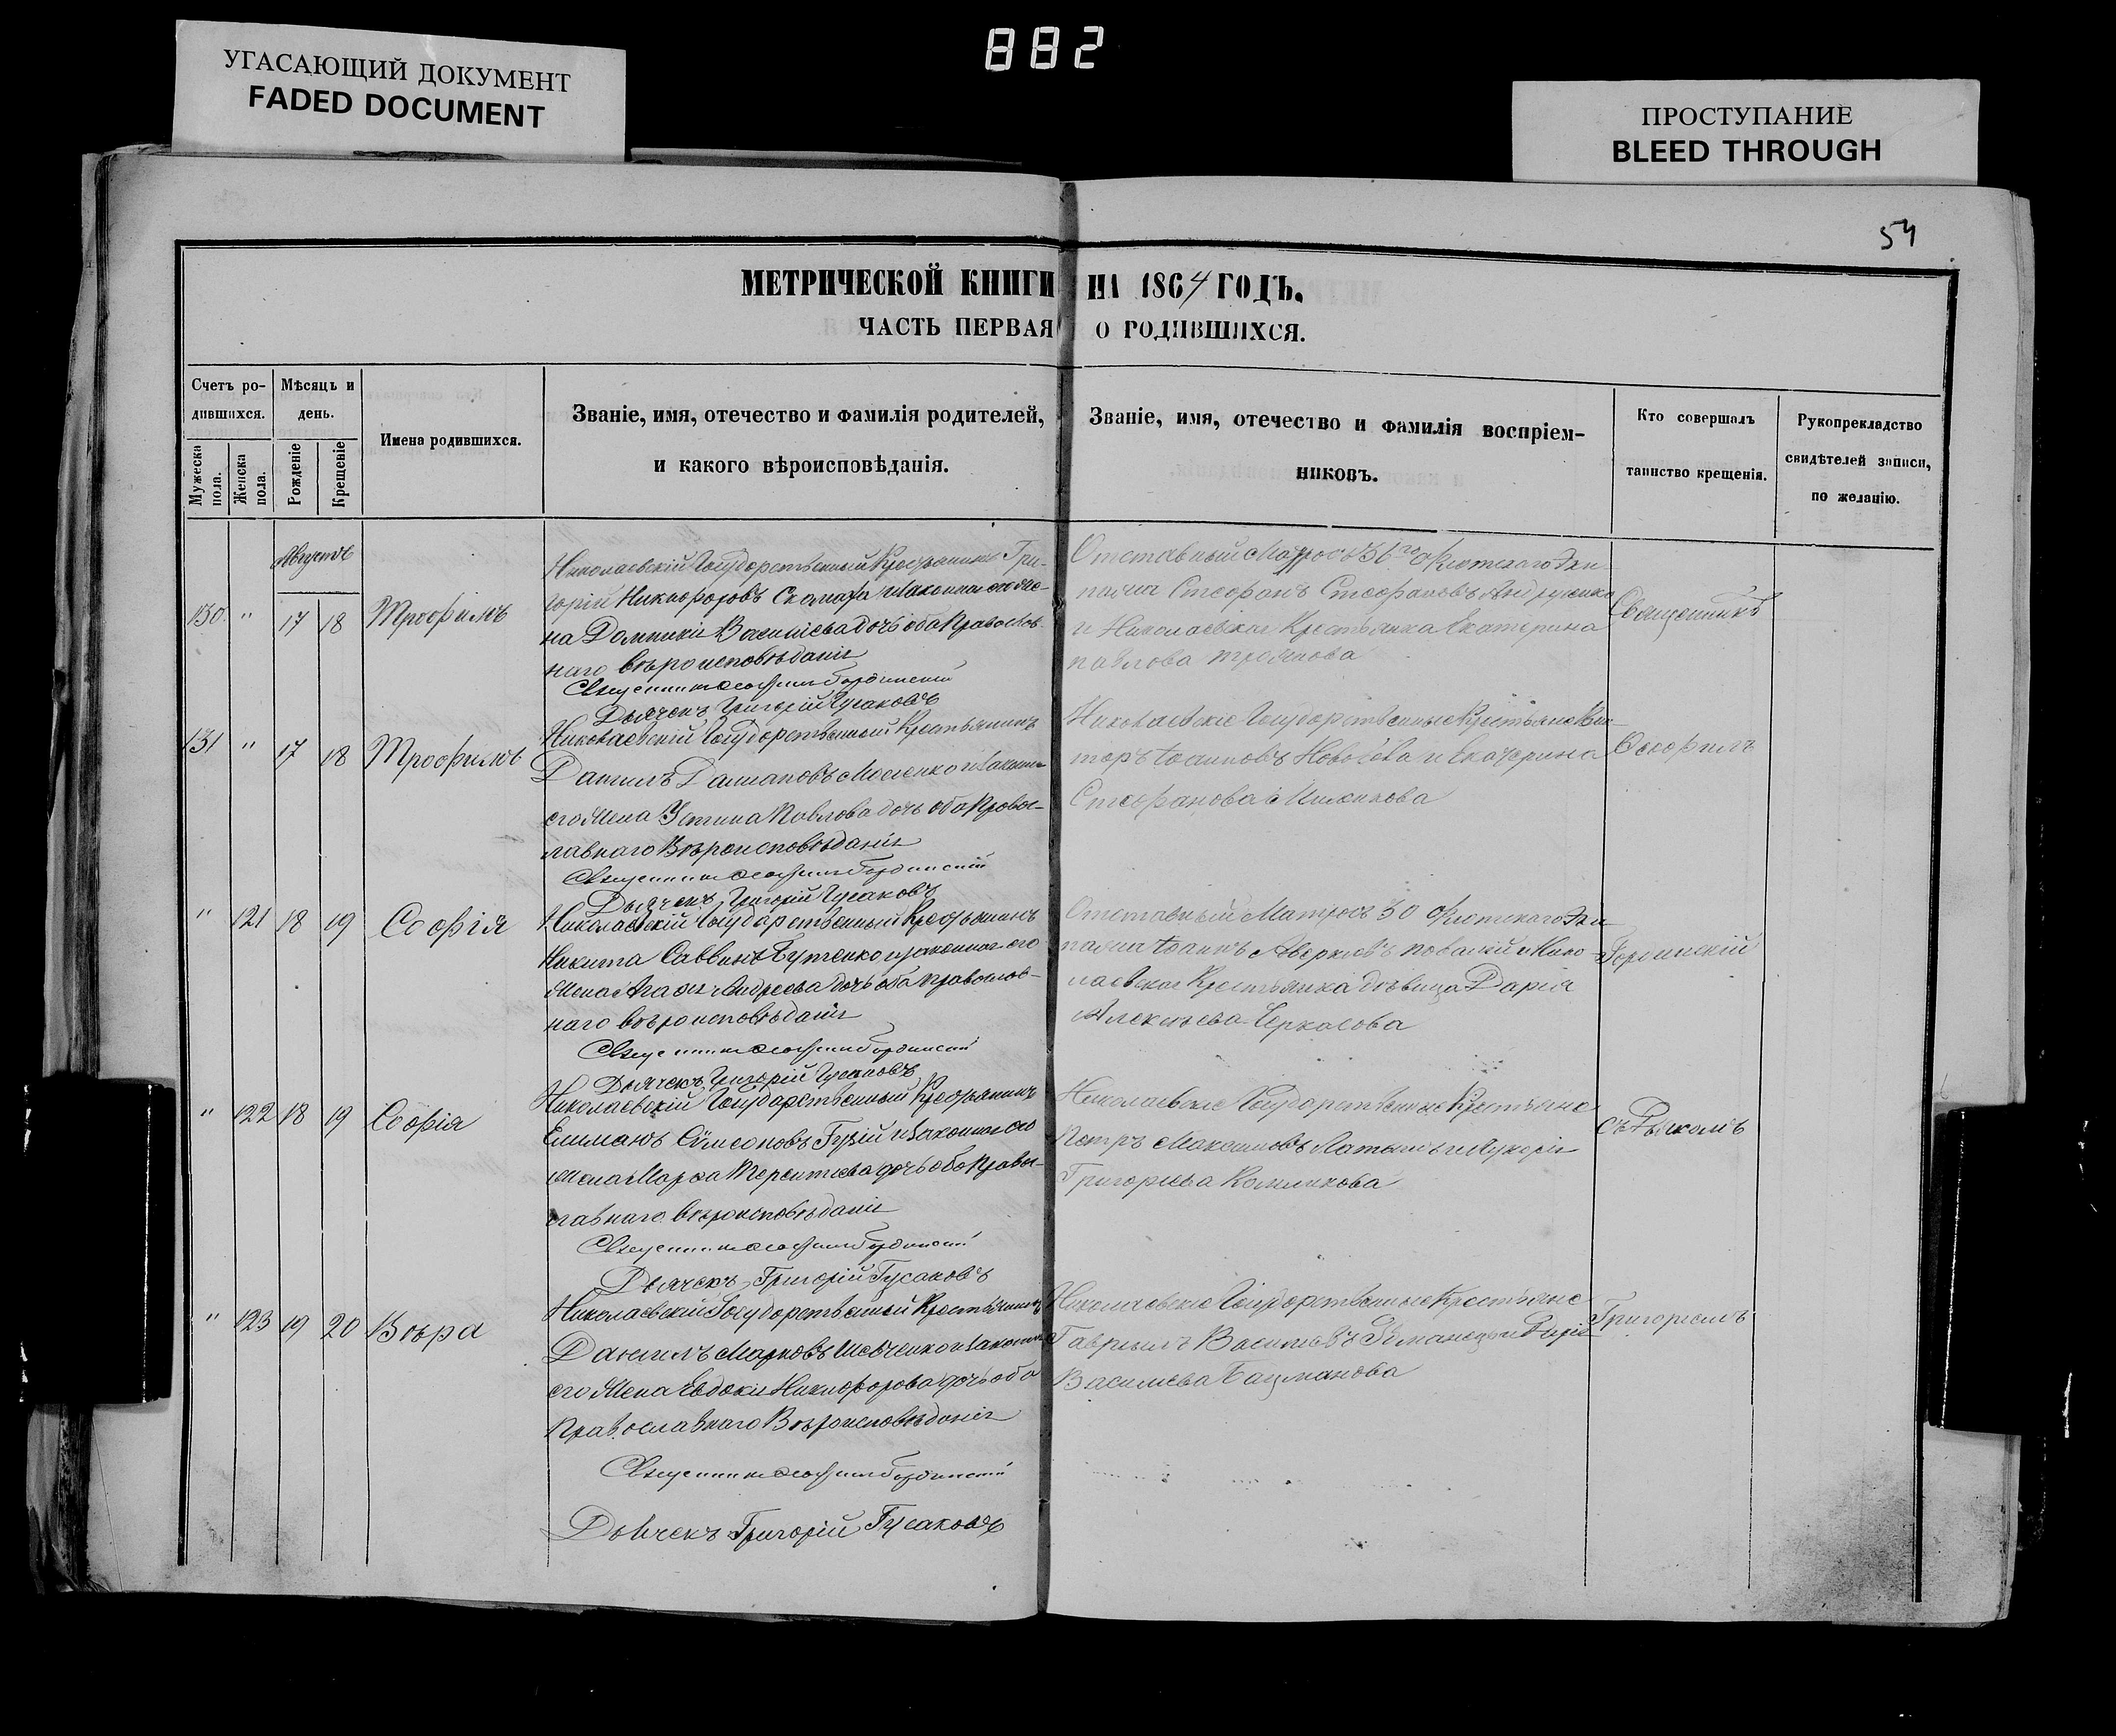 882
УГАСАЮЩИЙ ДОКУМЕНТ
FADED DOCUMENT
ПРОСТУПАНИЕ
BLEED THROUGH
54
МЕТРИЧЕСКОЙ КНИГИ НА 1864 ГОДЪ.
ЧАСТЬ ПЕРВАЯ О РОДИВШИХСЯ.
Счетъ ро-
дившихся.
Мужеска пола.
Женска пола.
Мѣсяцъ и
день.
Рожденіе
Крещеніе
Имена родившихся.
Званіе, имя, отечество и фамилія родителей,
и какого вѣроисповѣданія.
Званіе, имя, отечество и фамилія воспріем-
никовъ.
Кто совершалъ
таинство крещенія.
Рукоприкладство
свидѣтелей записи,
по желанію.
Августъ
130. " 17 18 Трофимъ
Николаевскій Государственный Крестьянинъ Гри-
горій Никифоровъ и законная его же-
на Домникія Васильева дочь оба Православ-
наго вѣроисповѣданія
Дьячекъ Григорій Гусаковъ
Отставный Матросъ 36го Флотскаго Эки-
пажа Стефанъ Стефановъ Андрущенко
и Николаевская Крестьянка Екатерина
Павлова
Священникъ
131 " 17 18 Трофимъ
Николаевскій Государственный Крестьянинъ
Даніилъ и законная
его Жена Устина Павлова дочь оба Правос-
лавнаго Вѣроисповѣданія
Дьячекъ Григорій Гусаковъ
Николаевскіе Государственные Крестьяне Вик-
торъ Іоанновъ и Екатерина
Стефанова
" 121 18 19 Софія
Николаевскій Государственный Крестьянинъ
Никита Саввинъ Бутенко и законная его
Жена Агафія Андреева дочь оба православ-
наго вѣроисповѣданія
Дьячекъ Григорій Гусаковъ
Отставный Матросъ 30 Флотскаго Эки-
пажа Іоаннъ Аверкіевъ и Нико-
лаевская Крестьянка дѣвица Дарія
Алексѣева Черкасова
" 122 18 19 Софія
Николаевскій Государственный Крестьянинъ
Сѵмеоновъ и законная его
Жена Марѳа Терентіева дочь оба Правос-
лавнаго вѣроисповѣданія
Дьячекъ Григорій Гусаковъ
Николаевскіе Государственные Крестьяне
Петръ Максимовъ и Лукерія
Григорьева
съ Дьякомъ
" 123 19 20 Вѣра
Николаевскій Государственный Крестьянинъ
Даніилъ Марковъ Шевченко и законная
его Жена Евдокія Никифорова дочь оба
Православнаго Вѣроисповѣданія
Дьячекъ Григорій Гусаковъ
Николаевскіе Государственные Крестьяне
Гавріилъ Васильевъ и Дарія
Васильева Бацманова
Григоріемъ